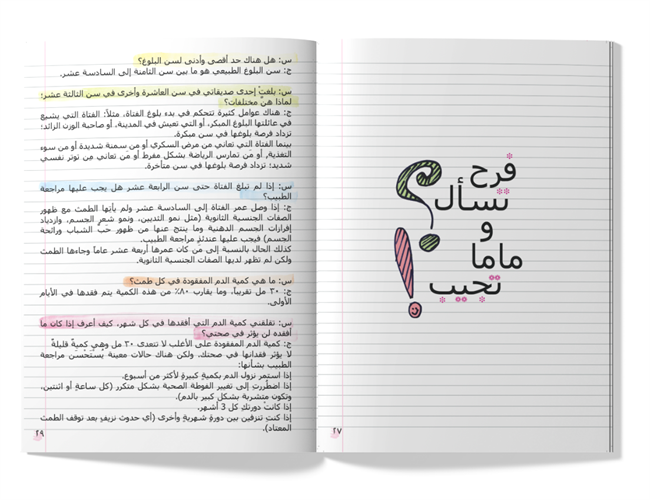 فرح
تسأل
و
ماما
تجيب
٢٧
س: هل هناك حد أقصى وأدنى لسن البلوغ؟
ج: سن البلوغ الطبيعي هو ما بين سن الثامنة إلى السادسة عشر.
س: بلغت إحدى صديقاتي في سن العاشرة وأخرى في سن الثالثة عشر؛
لماذا هن مختلفات؟
ج: هناك عوامل كثيرة تتحكم في بدء بلوغ الفتاة، مثلاً: الفتاة التي يشيع
في عائلتها البلوغ المبكر، أو التي تعيش في المدينة، أو صاحبة الوزن الزائد؛
تزداد فرصة بلوغها في سن مبكرة.
بينما الفتاة التي تعاني من مرض السكري أو من سمنة شديدة أو من سوء
التغذية، أو من تمارس الرياضة بشكل مفرط أو من تعاني من توتر نفسي
شديد؛ تزداد فرصة بلوغها في سن متأخرة.
س: إذا لم تبلغ الفتاة حتى سن الرابعة عشر هل يجب عليها مراجعة
الطبيب؟
ج: إذا وصل عمر الفتاة إلى السادسة عشر ولم يأتها الطمث مع ظهور
الصفات الجنسية الثانوية (مثل نمو الثديين، ونمو شعر الجسم، وازدياد
إفرازات الجسم الدهنية وما ينتج عنها من ظهور حب الشباب ورائحة
الجسم) فيجب عليها عندئذ مراجعة الطبيب.
كذلك الحال بالنسبة إلى من كان عمرها أربعة عشر عاماً وجاءها الطمث
ولكن لم تظهر لديها الصفات الجنسية الثانوية.
س: ما هي كمية الدم المفقودة في كل طمث؟
ج: ٣٠ مل تقريباً، وما يقارب ٨٠٪ من هذه الكمية يتم فقدها في الأيام
الأولى.
س: تقلقني كمية الدم التي أفقدها في كل شهر، كيف أعرف إذا كان ما
أفقده لن يؤثر في صحتي؟
ج: كمية الدم المفقودة على الأغلب لا تتعدى ٣٠ مل وهي كمية قليلة
لا يؤثر فقدانها في صحتك. ولكن هناك حالات معينة يُستحسن مراجعة
الطبيب بشأنها:
إذا استمر نزول الدم بكمية كبيرة لأكثر من أسبوع.
إذا اضطررتِ إلى تغيير الفوطة الصحية بشكل متكرر (كل ساعة أو اثنتين،
وتكون متشربة بشكل كبير بالدم).
إذا كانت دورتك كل 3 أشهر.
إذا كنتِ تنزفين بين دورة شهرية وأخرى (أي حدوث نزيف بعد توقف الطمث
المعتاد).
٢٩